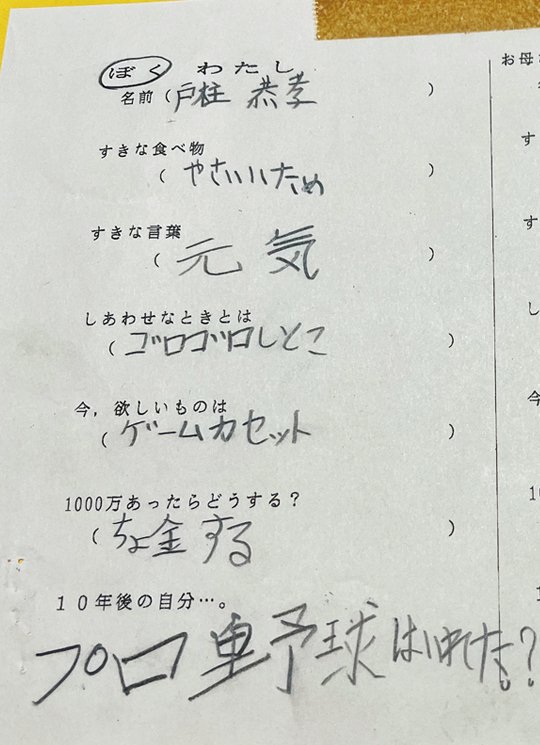 ぼく わたし
名前（戸柱 恭孝）
すきな食べ物
（やさいいため）
すきな言葉
（元気）
しあわせなときとは
（ゴロゴロしとこ）
今，欲しいものは
（ゲームカセット）
1000万あったらどうする？
（ちょ金する）
１０年後の自分…。
プロ野球はいれてた。？
お母
す
す
し
今